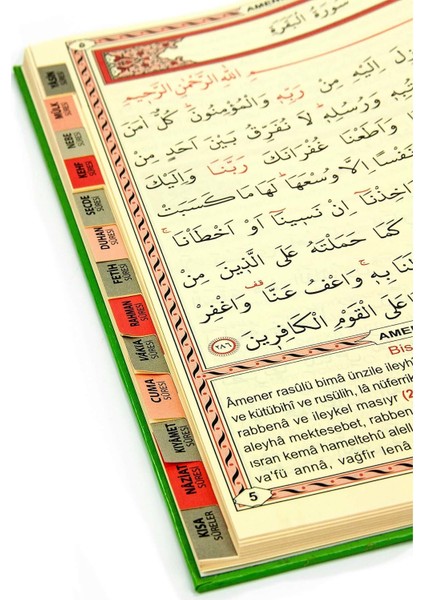 AMENE
سُورَةُ الْبَقَرَةِ
۞ اللّٰهِ الرَّحْمٰنِ الرَّحِيمِ
اِلَيْهِ مِنْ رَبِّهِ وَالْمُؤْمِنُونَ كُلٌّ اٰمَنَ
وَرُسُلِهِ لَا نُفَرِّقُ بَيْنَ اَحَدٍ مِنْ
وَاَطَعْنَا غُفْرَانَكَ رَبَّنَا وَاِلَيْكَ
نَفْسًا اِلَّا وُسْعَهَا لَهَا مَا كَسَبَتْ
اِنْ نَسِينَا اَوْ اَخْطَأْنَا
كَمَا حَمَلْتَهُ عَلَى الَّذِينَ مِنْ
بِهِ وَاعْفُ عَنَّا وَاغْفِرْ
عَلَى الْقَوْمِ الْكَافِرِينَ ٢٨٦
AMENER
Bis
Âmener rasûlü bimâ ünzile ileyh
ve kütübihî ve rusülih, lâ nüferrik
rabbenâ ve ileykel masıyr (2
aleyhâ mektesebet, rabben
ısran kemâ hameltehû alell
va'fü annâ, vağfir lenâ
5
YASİN
SÛRESİ
MÜLK
SÛRESİ
NEBE
SÛRESİ
KEHF
SÛRESİ
SECDE
SÛRESİ
DUHAN
SÛRESİ
FETİH
SÛRESİ
RAHMAN
SÛRESİ
VAKIA
SÛRESİ
CUMA
SÛRESİ
KIYAMET
SÛRESİ
NÂZİAT
SÛRESİ
KISA
SÛRELER